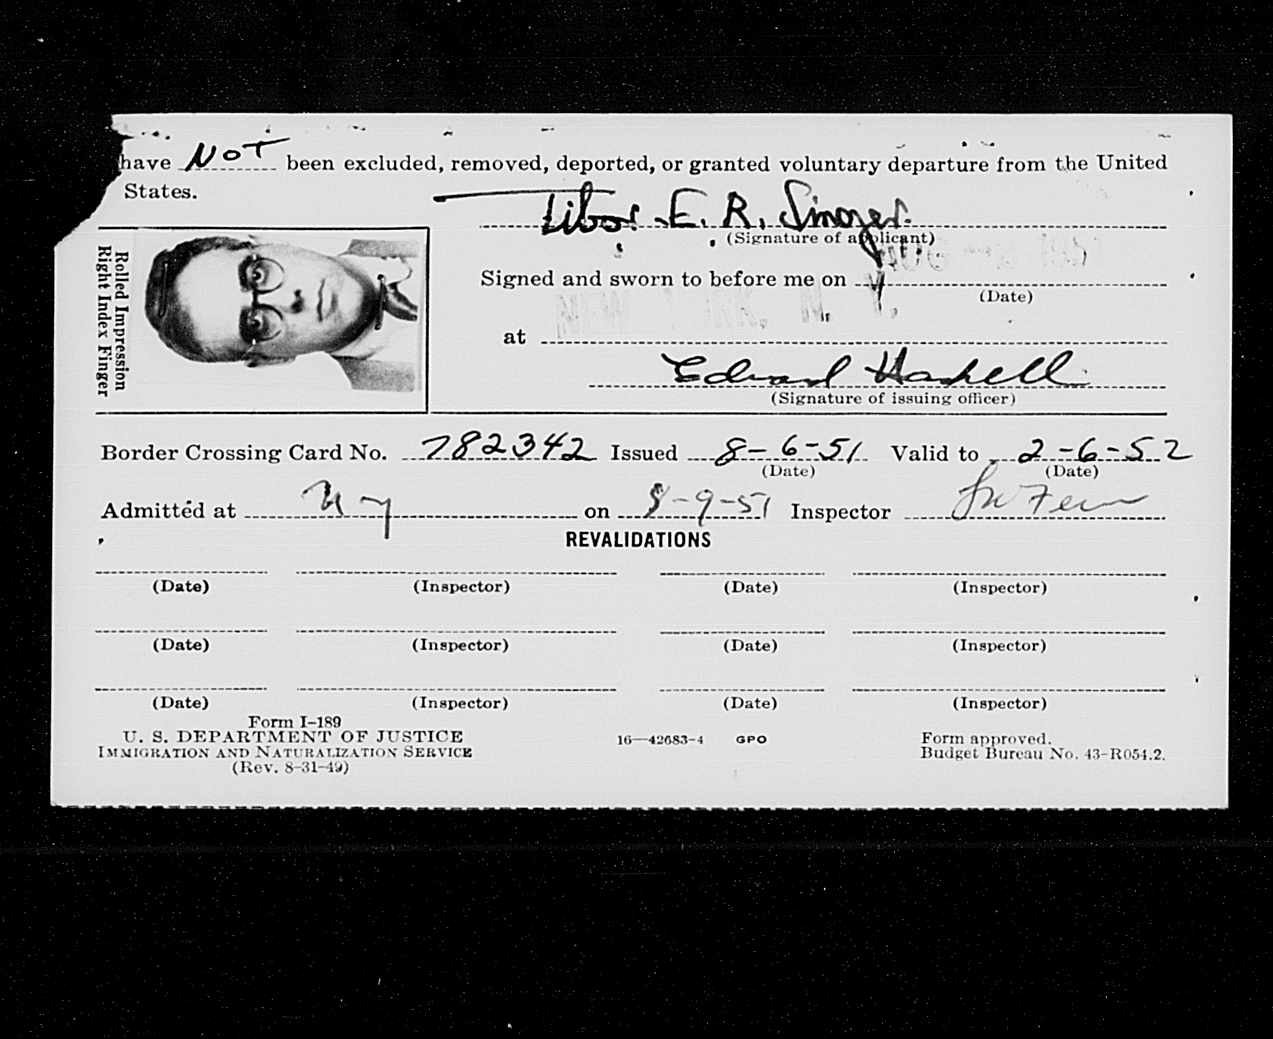 have NOT been excluded, removed, deported, or granted voluntary departure from the United
States.
Tibor E. R. Singer.
(Signature of applicant)
Rolled Impression
Right Index Finger
Signed and sworn to before me on
(Date)
at NEW YORK, N. Y.
Edward Haskell
(Signature of issuing officer)
Border Crossing Card No. 782342 Issued 8-6-51 Valid to 2-6-52
(Date) (Date)
Admitted at NY on 8-9-51 Inspector
REVALIDATIONS
(Date) (Inspector) (Date) (Inspector)
(Date) (Inspector) (Date) (Inspector)
(Date) (Inspector) (Date) (Inspector)
Form I-189
U. S. DEPARTMENT OF JUSTICE 16—42683-4 GPO Form approved.
IMMIGRATION AND NATURALIZATION SERVICE Budget Bureau No. 43-R054.2.
(Rev. 8-31-49)